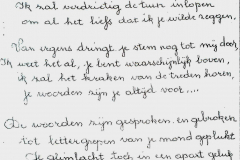 Ik zal verdrietig de tuin inlopen
om al het liefs dat ik je wilde zeggen,
Van ergens dringt je stem nog tot mij door,
Ik weet het al, je bent waarschijnlijk boven,
ik zal het kraken van de treden horen,
je woorden zijn je altijd voor....
De woorden zijn gesproken en gebroken
tot lettergrepen van je mond geplukt
Je glimlacht toch in een apart geluk